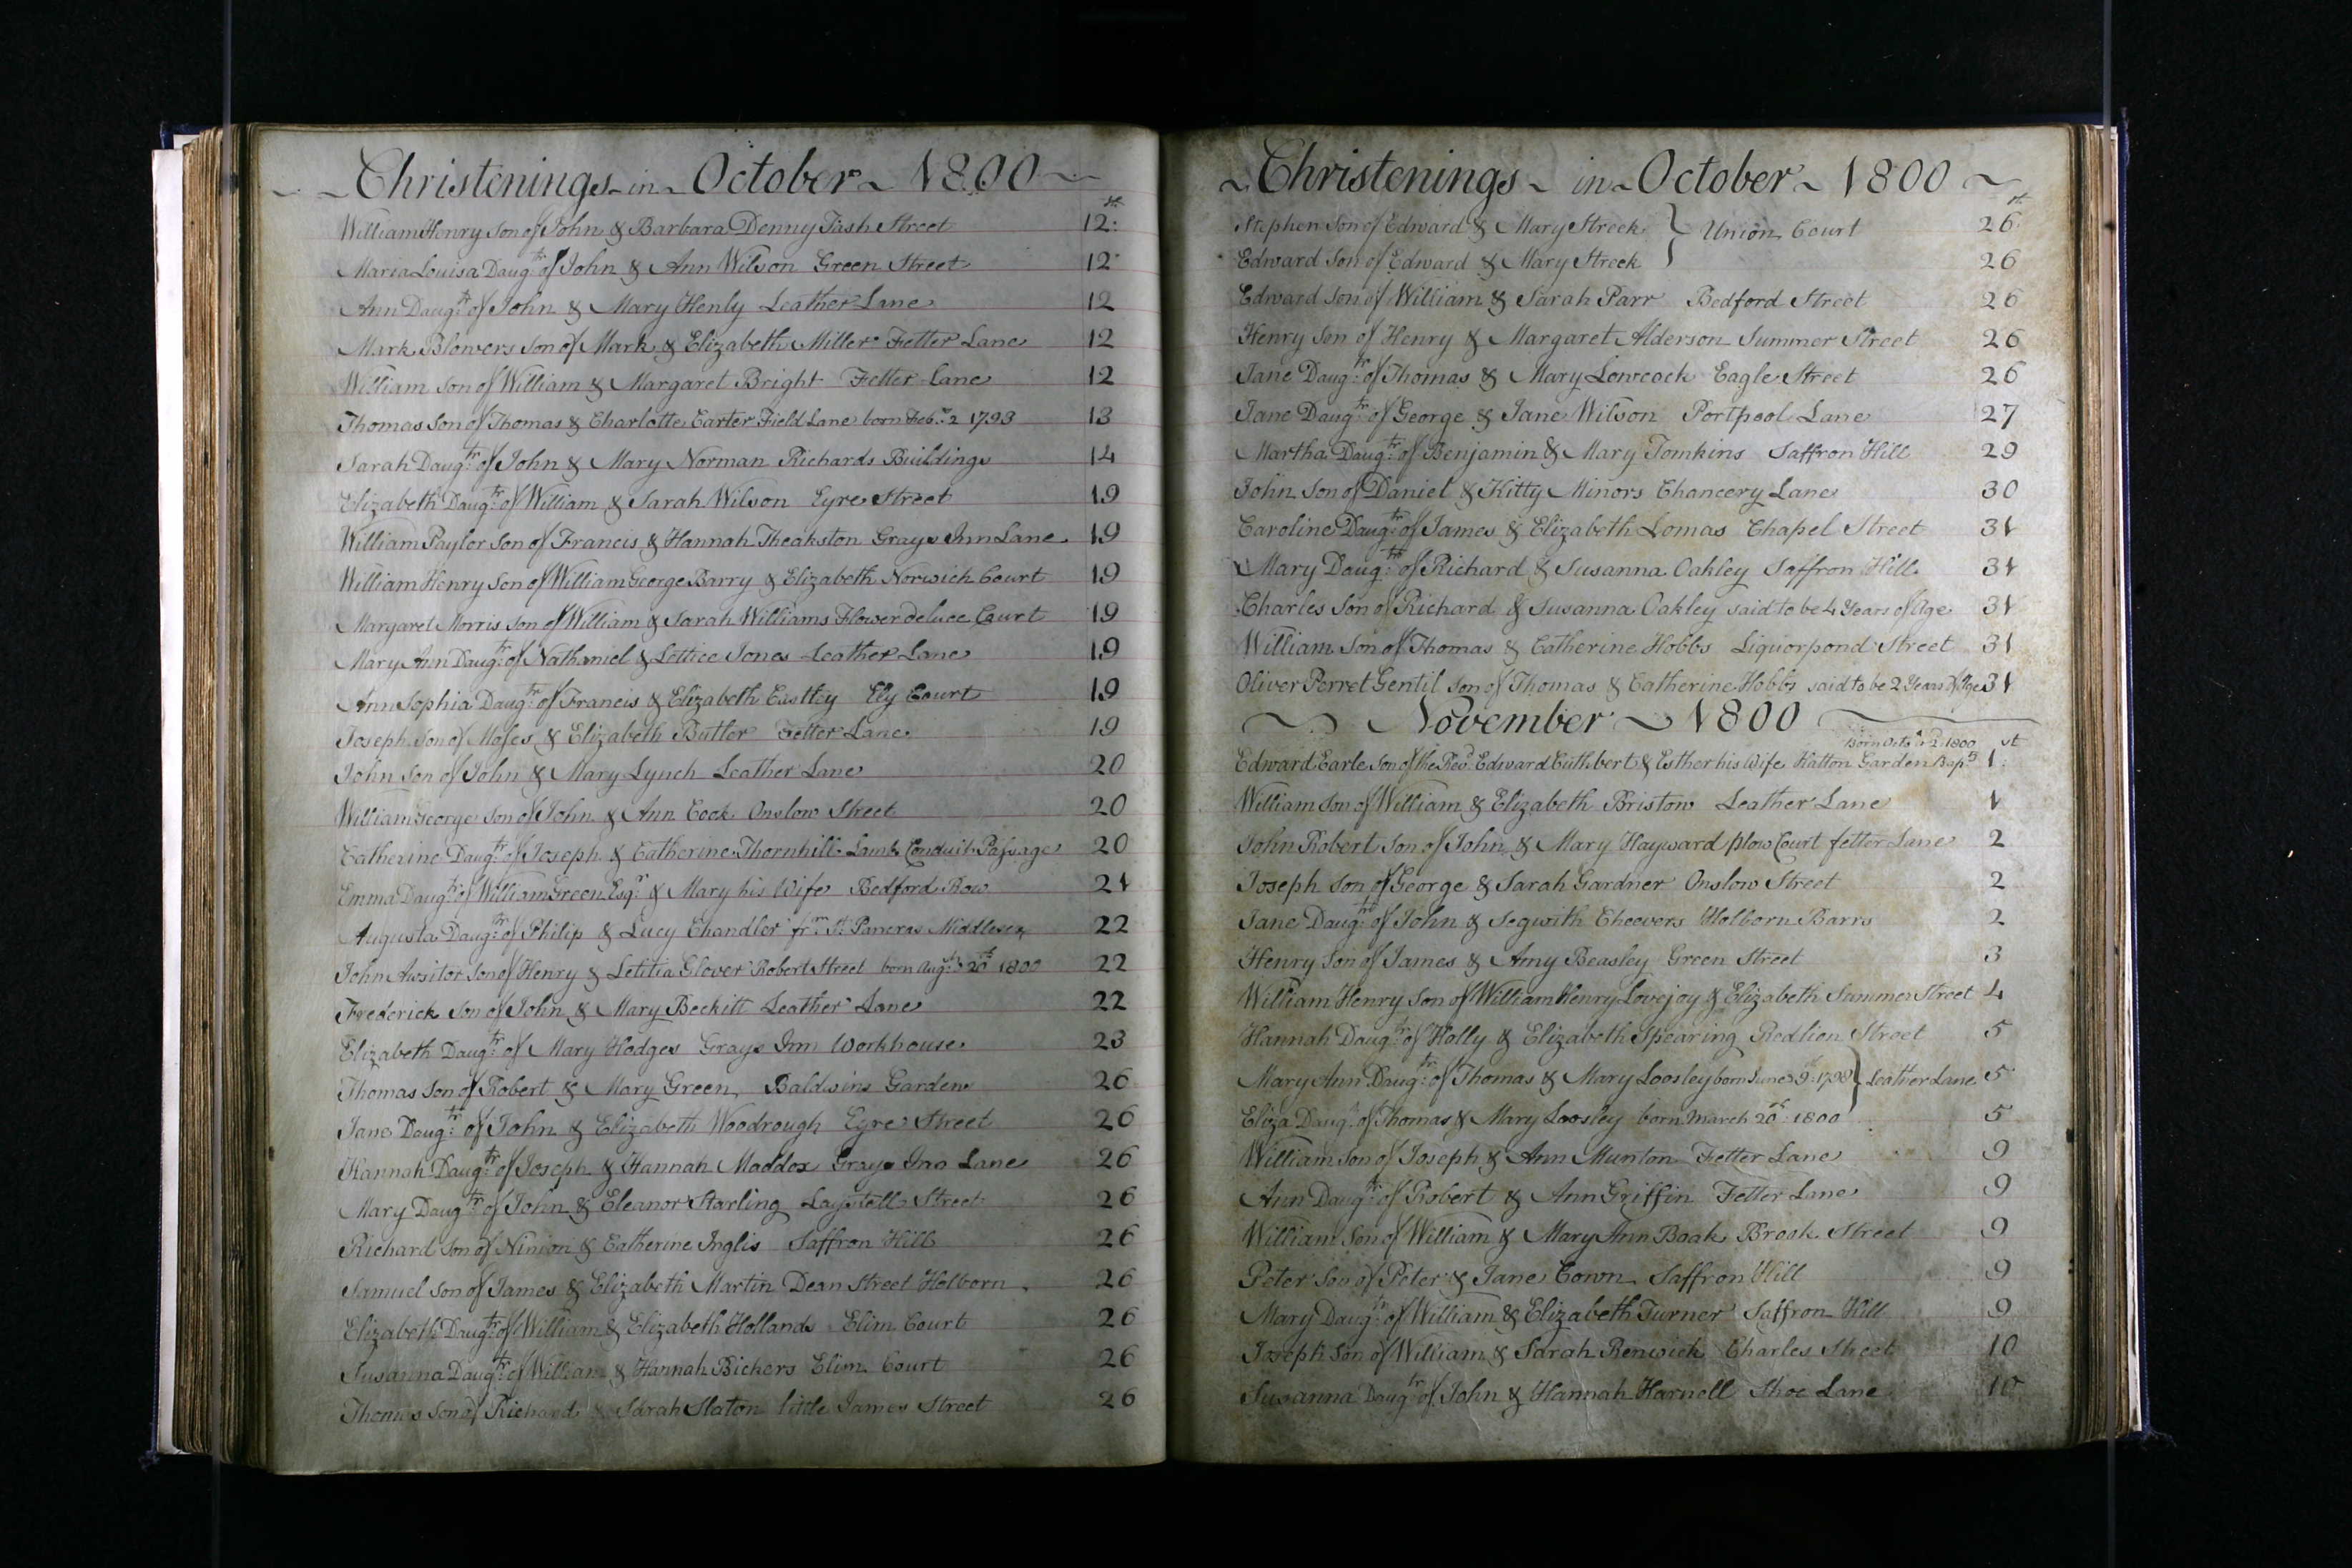 Christenings in October 1800
William Henry Son of John & Barbara Denny Tash Street 12th
Maria Louisa Daugtr of John & Ann Wilson Green Street 12
Ann Daugtr of John & Mary Henly Leather Lane 12
Mark Blowers Son of Mark & Elizabeth Miller Fetter Lane 12
William Son of William & Margaret Bright Fetter Lane 12
Thomas Son of Thomas & Charlotte Carter Field Lane born Feby 2 1793 13
Sarah Daugtr of John & Mary Norman Richards Buildings 14
Elizabeth Daugtr of William & Sarah Wilson Eyre Street 19
William Paylor Son of Francis & Hannah Theakston Grays Inn Lane 19
William Henry Son of William George Barry & Elizabeth Norwich Court 19
Margaret Morris Son of William & Sarah Williams Flower deluce Court 19
Mary Ann Daugtr of Nathaniel & Lettice Jones Leather Lane 19
Ann Sophia Daugtr of Francis & Elizabeth Eastley Ely Court 19
Joseph Son of Moses & Elizabeth Butler Fetter Lane 19
John Son of John & Mary Lynch Leather Lane 20
William George Son of John & Ann Cock Onslow Street 20
Catherine Daugtr of Joseph & Catherine Thornhill Lambs Conduit Passage 20
Emma Daugtr of William Green Esqr & Mary his Wife Bedford Row 21
Augusta Daugtr of Philip & Lucy Chandler frm St Pancras Middlesex 22
John Son of Henry & Letitia Glover Robert Street born Augst 20th 1800 22
Frederick Son of John & Mary Beckitt Leather Lane 22
Elizabeth Daugtr of Mary Hodges Grays Inn Workhouse 23
Thomas Son of Robert & Mary Green, Baldwins Gardens 26
Jane Daugtr of John & Elizabeth Woodrough Eyre Street 26
Hannah Daugtr of Joseph & Hannah Maddox Grays Inn Lane 26
Mary Daugtr of John & Eleanor Starling Laystall Street 26
Richard Son of Ninion & Catherine Inglis Saffron Hill 26
Samuel Son of James & Elizabeth Martin Dean Street Holborn 26
Elizabeth Daugtr of William & Elizabeth Hollands Elim Court 26
Susanna Daugtr of William & Hannah Bickers Elim Court 26
Thomas Son of Richard & Sarah Slaton little James Street 26
Christenings in October 1800
Stephen Son of Edward & Mary Streek } Union Court 26th
Edward Son of Edward & Mary Streek 26
Edward Son of William & Sarah Parr Bedford Street 26
Henry Son of Henry & Margaret Alderson Summer Street 26
Jane Daugtr of Thomas & Mary Lowcock Eagle Street 26
Jane Daugtr of George & Jane Wilson Portpool Lane 27
Martha Daugtr of Benjamin & Mary Tomkins Saffron Hill 29
John Son of Daniel & Kitty Minors Chancery Lane 30
Caroline Daugtr of James & Elizabeth Lomas Chapel Street 31
Mary Daugtr of Richard & Susanna Oakley Saffron Hill 31
Charles Son of Richard & Susanna Oakley said to be 4 Years of Age 31
William Son of Thomas & Catherine Hobbs Liquorpond Street 31
Oliver Perret Gentil Son of Thomas & Catherine Hobbs said to be 2 Years of Age 31
November 1800
Born Octr 2 1800
Edward Earle Son of the Revd Edward Cuthbert & Esther his Wife Hatton Garden 1st
William Son of William & Elizabeth Bristow Leather Lane 1
John Robert Son of John & Mary Hayward Plow Court fetter Lane 2
Joseph Son of George & Sarah Gardner Onslow Street 2
Jane Daugtr of John & Segwith Cheevers Holborn Barrs 2
Henry Son of James & Amy Beasley Green Street 3
William Henry Son of William Henry Lovejoy & Elizabeth Summer Street 4
Hannah Daugtr of Holly & Elizabeth Spearing Redlion Street 5
Mary Ann Daugtr of Thomas & Mary Loosley born June 9th 1798 } Leather Lane 5
Eliza Daugtr of Thomas & Mary Loosley born March 20th 1800 5
William Son of Joseph & Ann Munton Fetter Lane 9
Ann Daugtr of Robert & Ann Griffin Fetter Lane 9
William Son of William & Mary Ann Baak Brook Street 9
Peter Son of Peter & Jane Cown Saffron Hill 9
Mary Daugtr of William & Elizabeth Turner Saffron Hill 9
Joseph Son of William & Sarah Renwick Charles Street 10
Susanna Daugtr of John & Hannah Harnell Shoe Lane 10